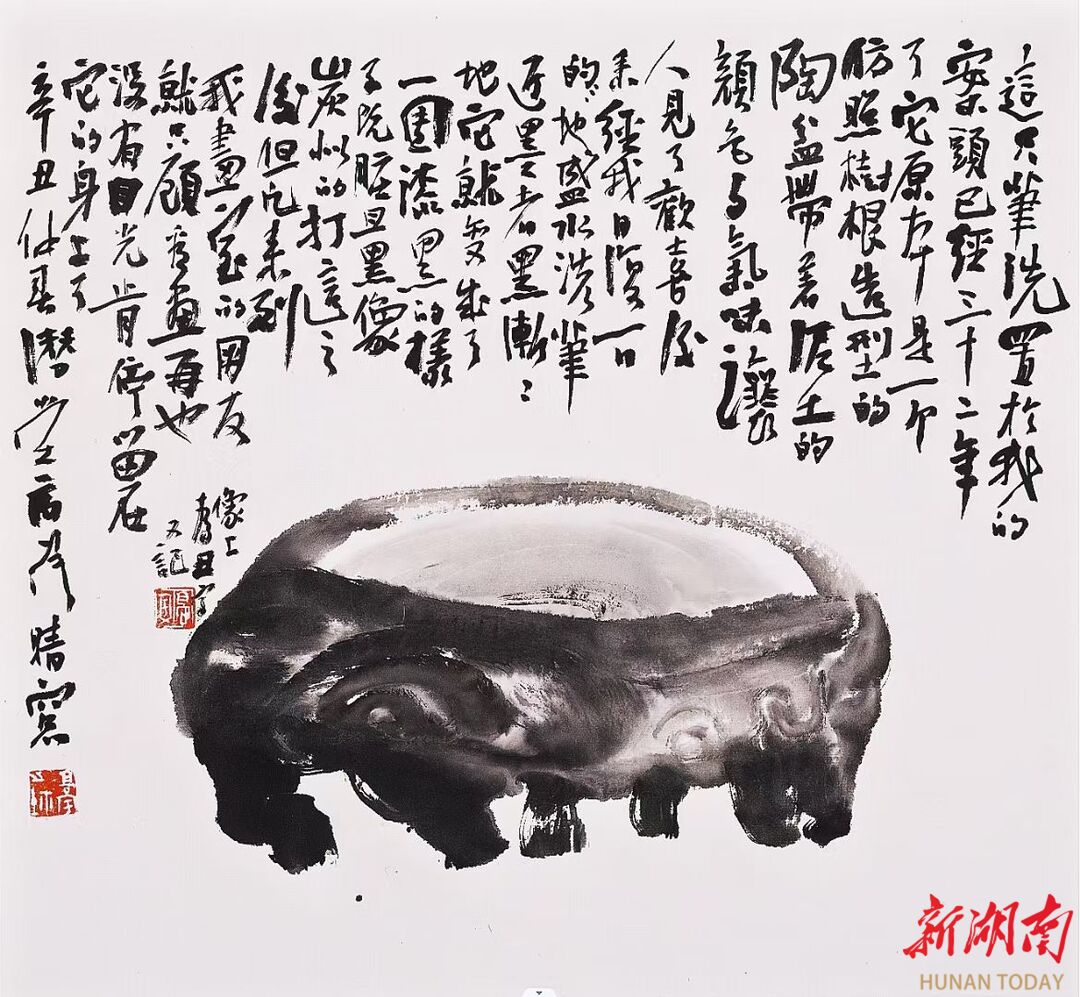 這只筆洗置於我的
案頭已經三十二年
了它原本是一个
仿照樹根造型的
陶盆帶着泥土的
顔色与氣味讓
人見了歡喜後
来經我日復一日
的地盛水洗筆
近墨者黑漸〻
地它就变成了
一團漆黑的樣
子既脏且黑像
炭似的打這之
後但凡来到
我畫室的朋友
就只顧看画再也
没有目光肯停留在
它的身上了
辛丑仲春潛堂晴窗
像上
又記
新湖南
HUNAN TODAY